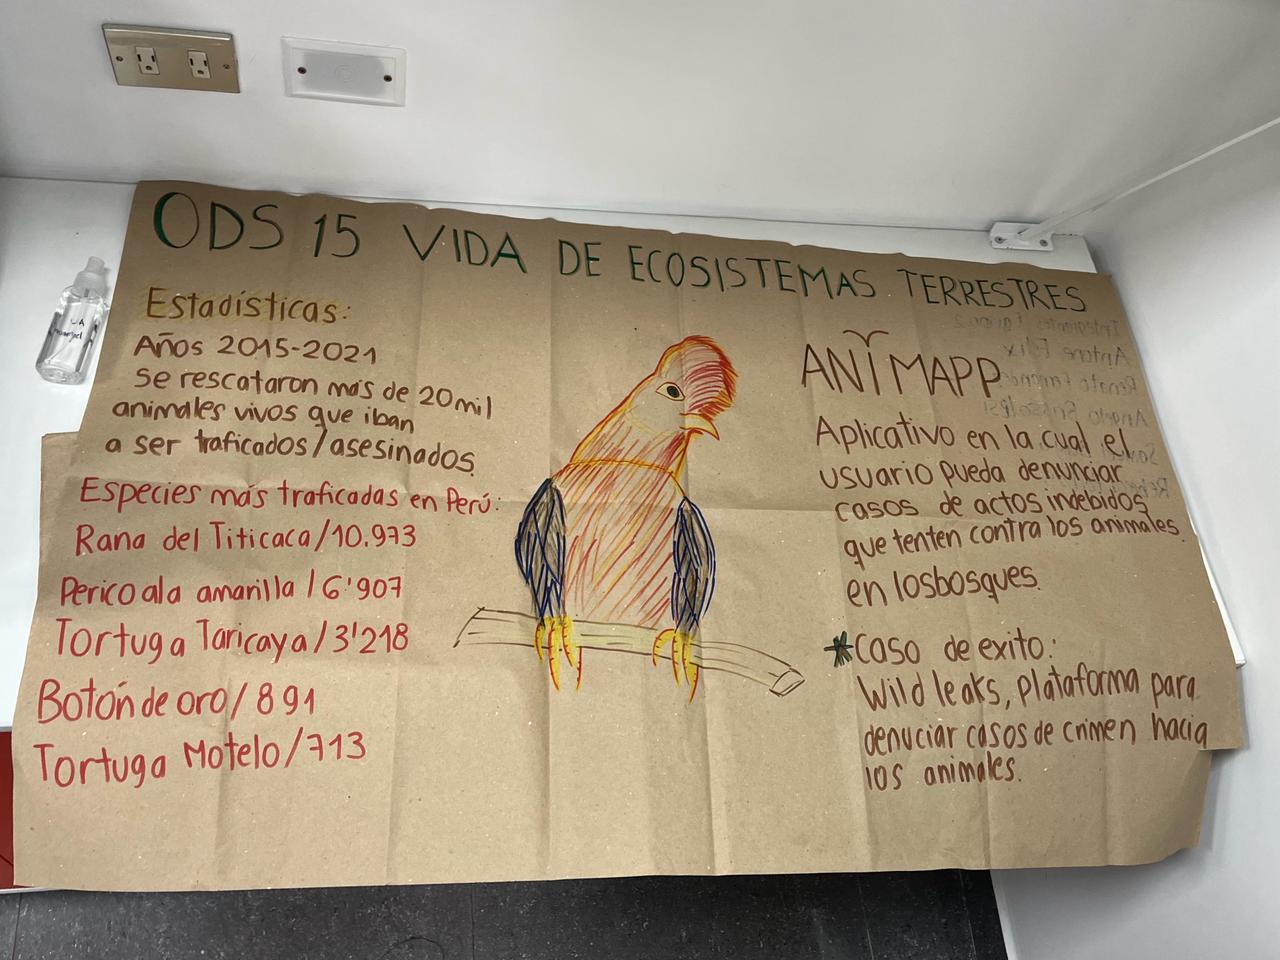 ODS 15 VIDA DE ECOSISTEMAS TERRESTRES
Estadísticas:
Años 2015-2021
se rescataron más de 20 mil
animales vivos que iban
a ser traficados/asesinados.
Especies más traficadas en Perú:
Rana del Titicaca/10.973
Perico ala amarilla/6'907
Tortuga Taricaya/3'218
Botón de oro/891
Tortuga Motelo/713
ANIMAPP
Aplicativo en la cual el
usuario pueda denunciar
casos de actos indebidos
que tenten contra los animales.
en losbosques.
*Caso de exito:
Wild leaks, plataforma para
denuciar casos de crimen hacia
los animales.
Integrantes Equipo 2